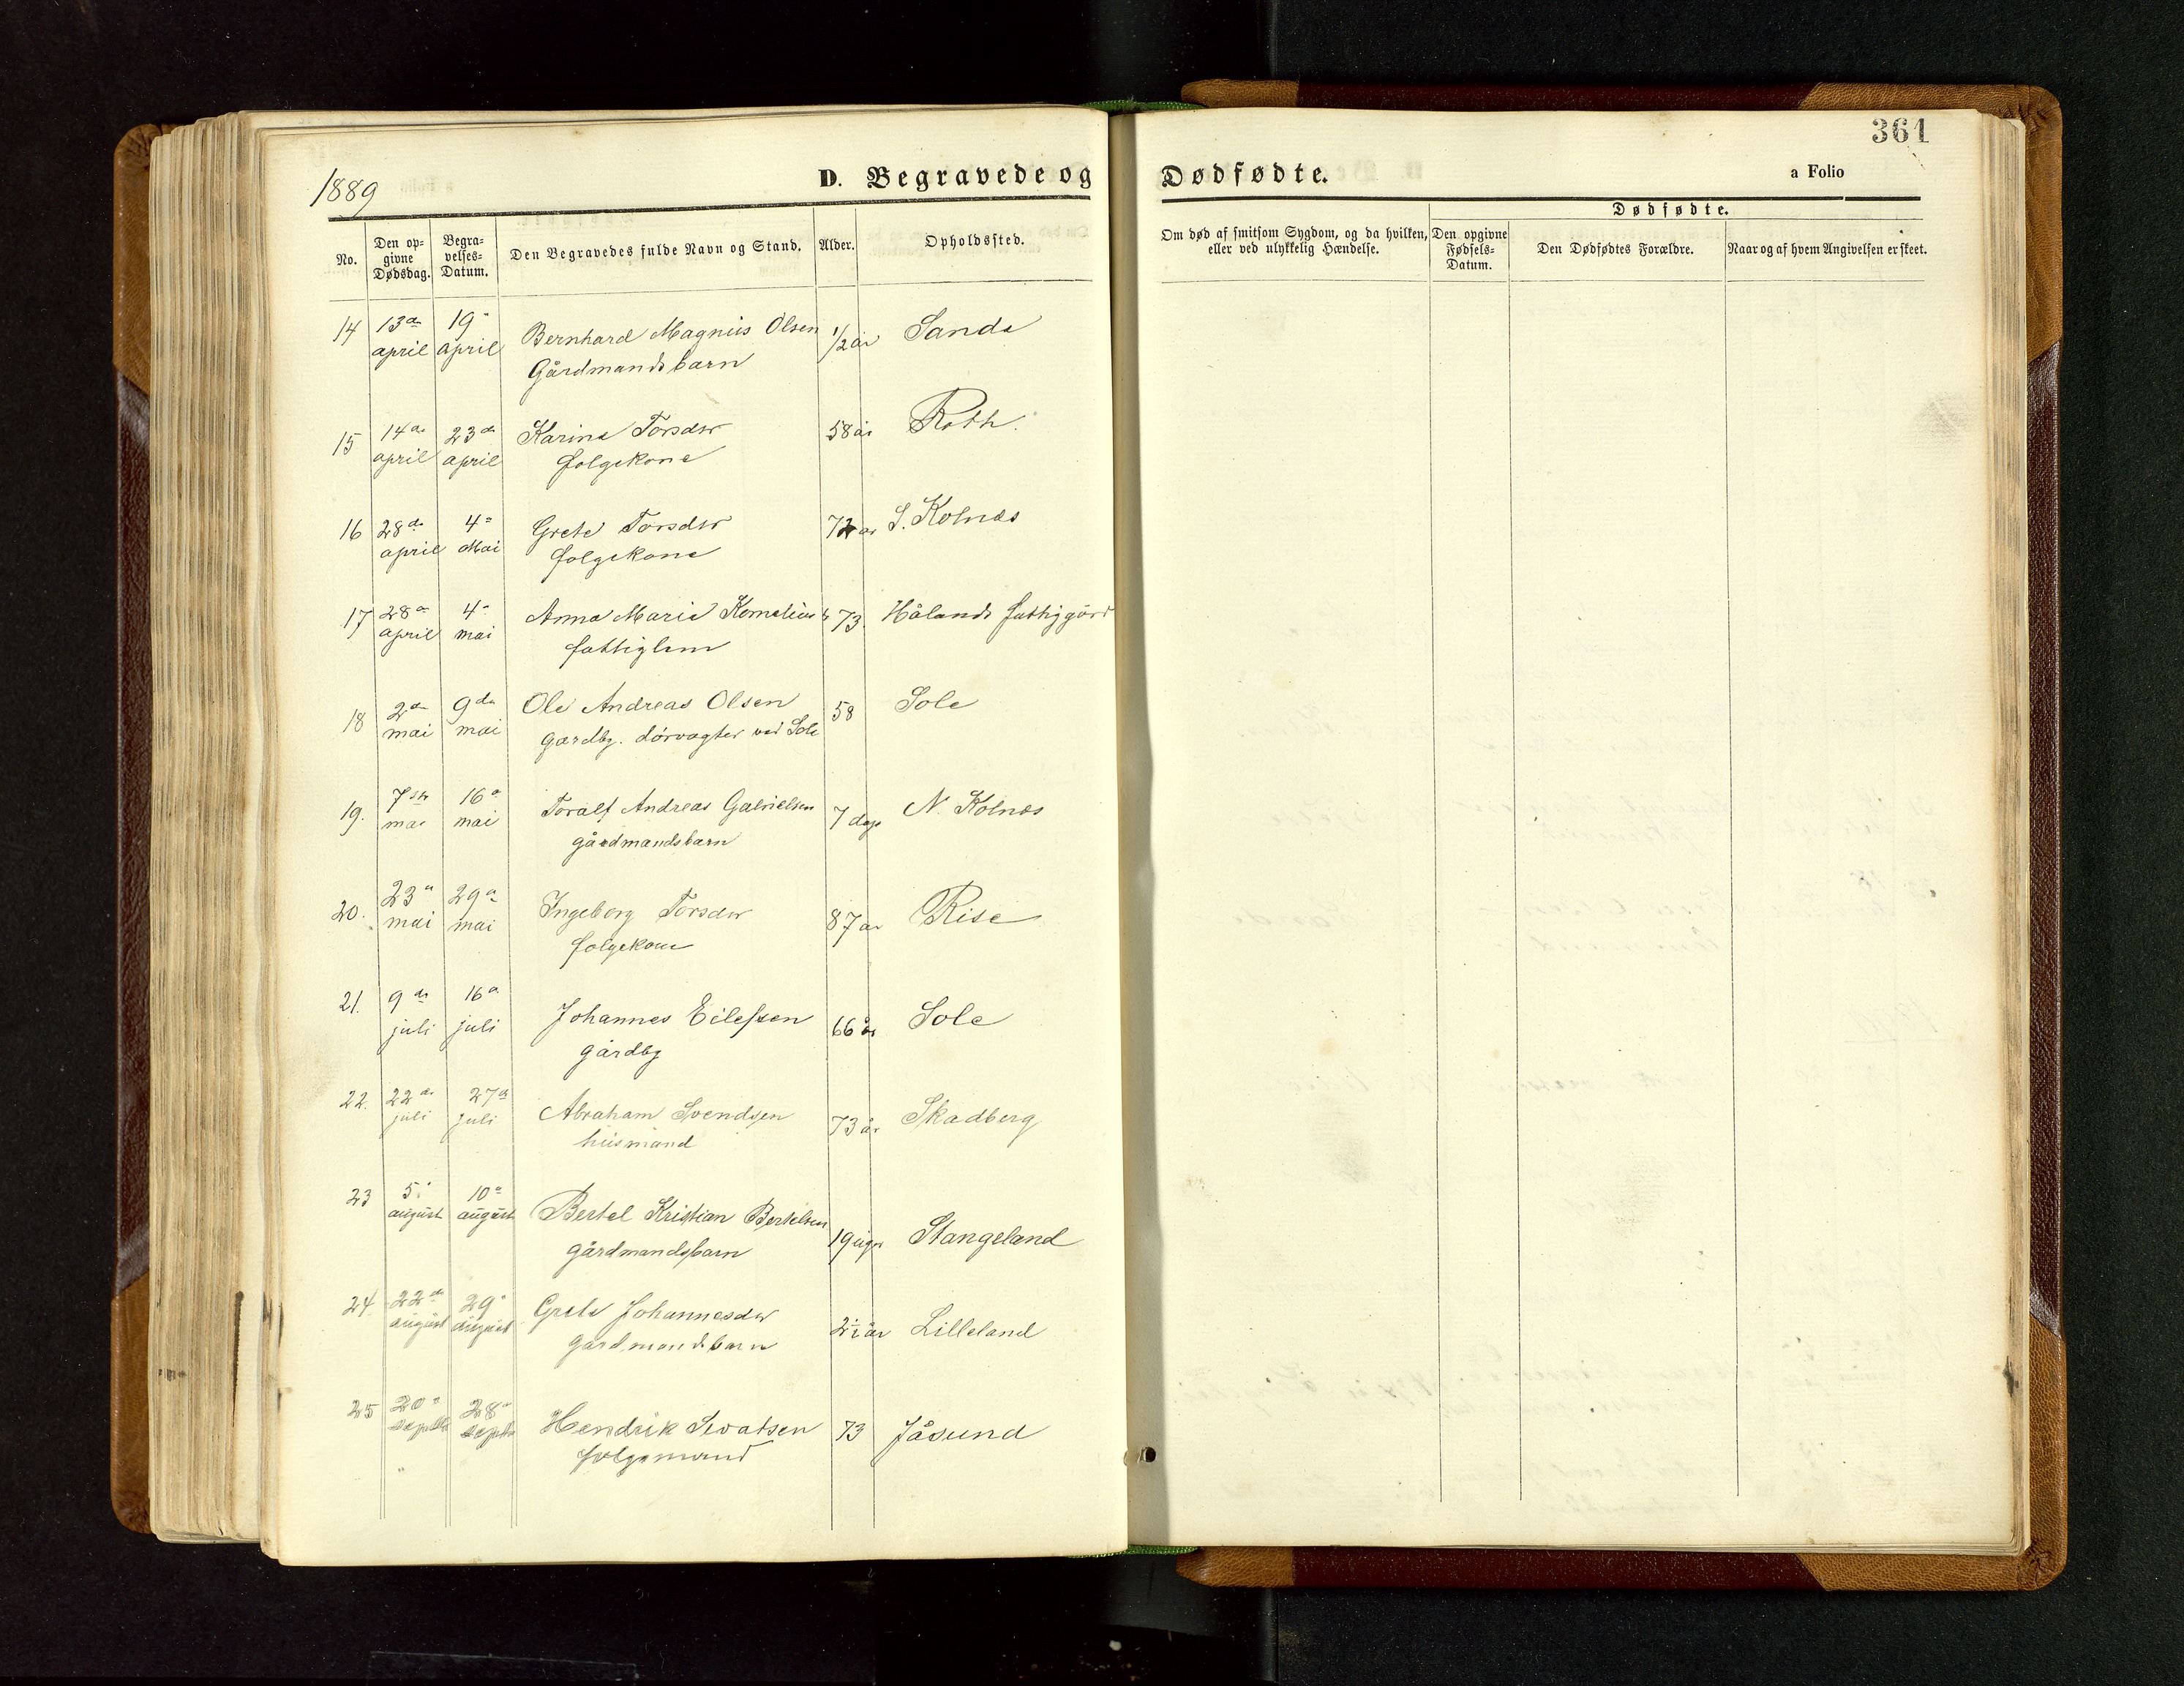 361
1889
D. Begravede og Dødfødte.
a Folio
No.
Den opgivne Dødsdag.
Begravelses-Datum.
Den Begravedes fulde Navn og Stand.
Alder.
Opholdssted.
Om død af smitsom Sygdom, og da hvilken, eller ved ulykkelig Hændelse.
Dødfødte.
Den opgivne Fødsels-Datum.
Den Dødfødtes Forældre.
Naar og af hvem Angivelsen er skeet.
14 13de 19 Bernhard Magnus Olsen 1/2 år Sande
april april Gårdmandsbarn
15 14de 23de Karine Torsdtr 58 år Roth.
april april folgekone
16 28de 4de Grete Torsdtr 72 år S. Kolnes
april Mai folgekone
17 28de 4de Anna Marie Kornelius 73 Hålands fattiggård
april mai fattiglem
18 2de 9de Ole Andreas Olsen 58 Sole
mai mai gardbg. dørvagter ved Sole
19. 7de 16de Toralf Andreas Gabrielsen 7 dage N. Kolnes
mai mai gårdmandsbarn
20. 23de 29de Ingeborg Torsdtr 87 år Rise
mai mai folgekone
21. 9de 16de Johannes Eilefsen 66 år Sole
juli juli gårdbg
22. 22de 27de Abraham Svendsen 73 år Skadberg
juli juli husmand
23 5 10de Bertel Kristian Bertelsen 19 uger Stangeland
august august gårdmandsbarn
24. 22de 29 Grete Johannesdtr år Lilleland
august august gårdmandsbarn
25 20de 28de Hendrik Sivatsen 73 Jåsund
septbr septbr folgemand